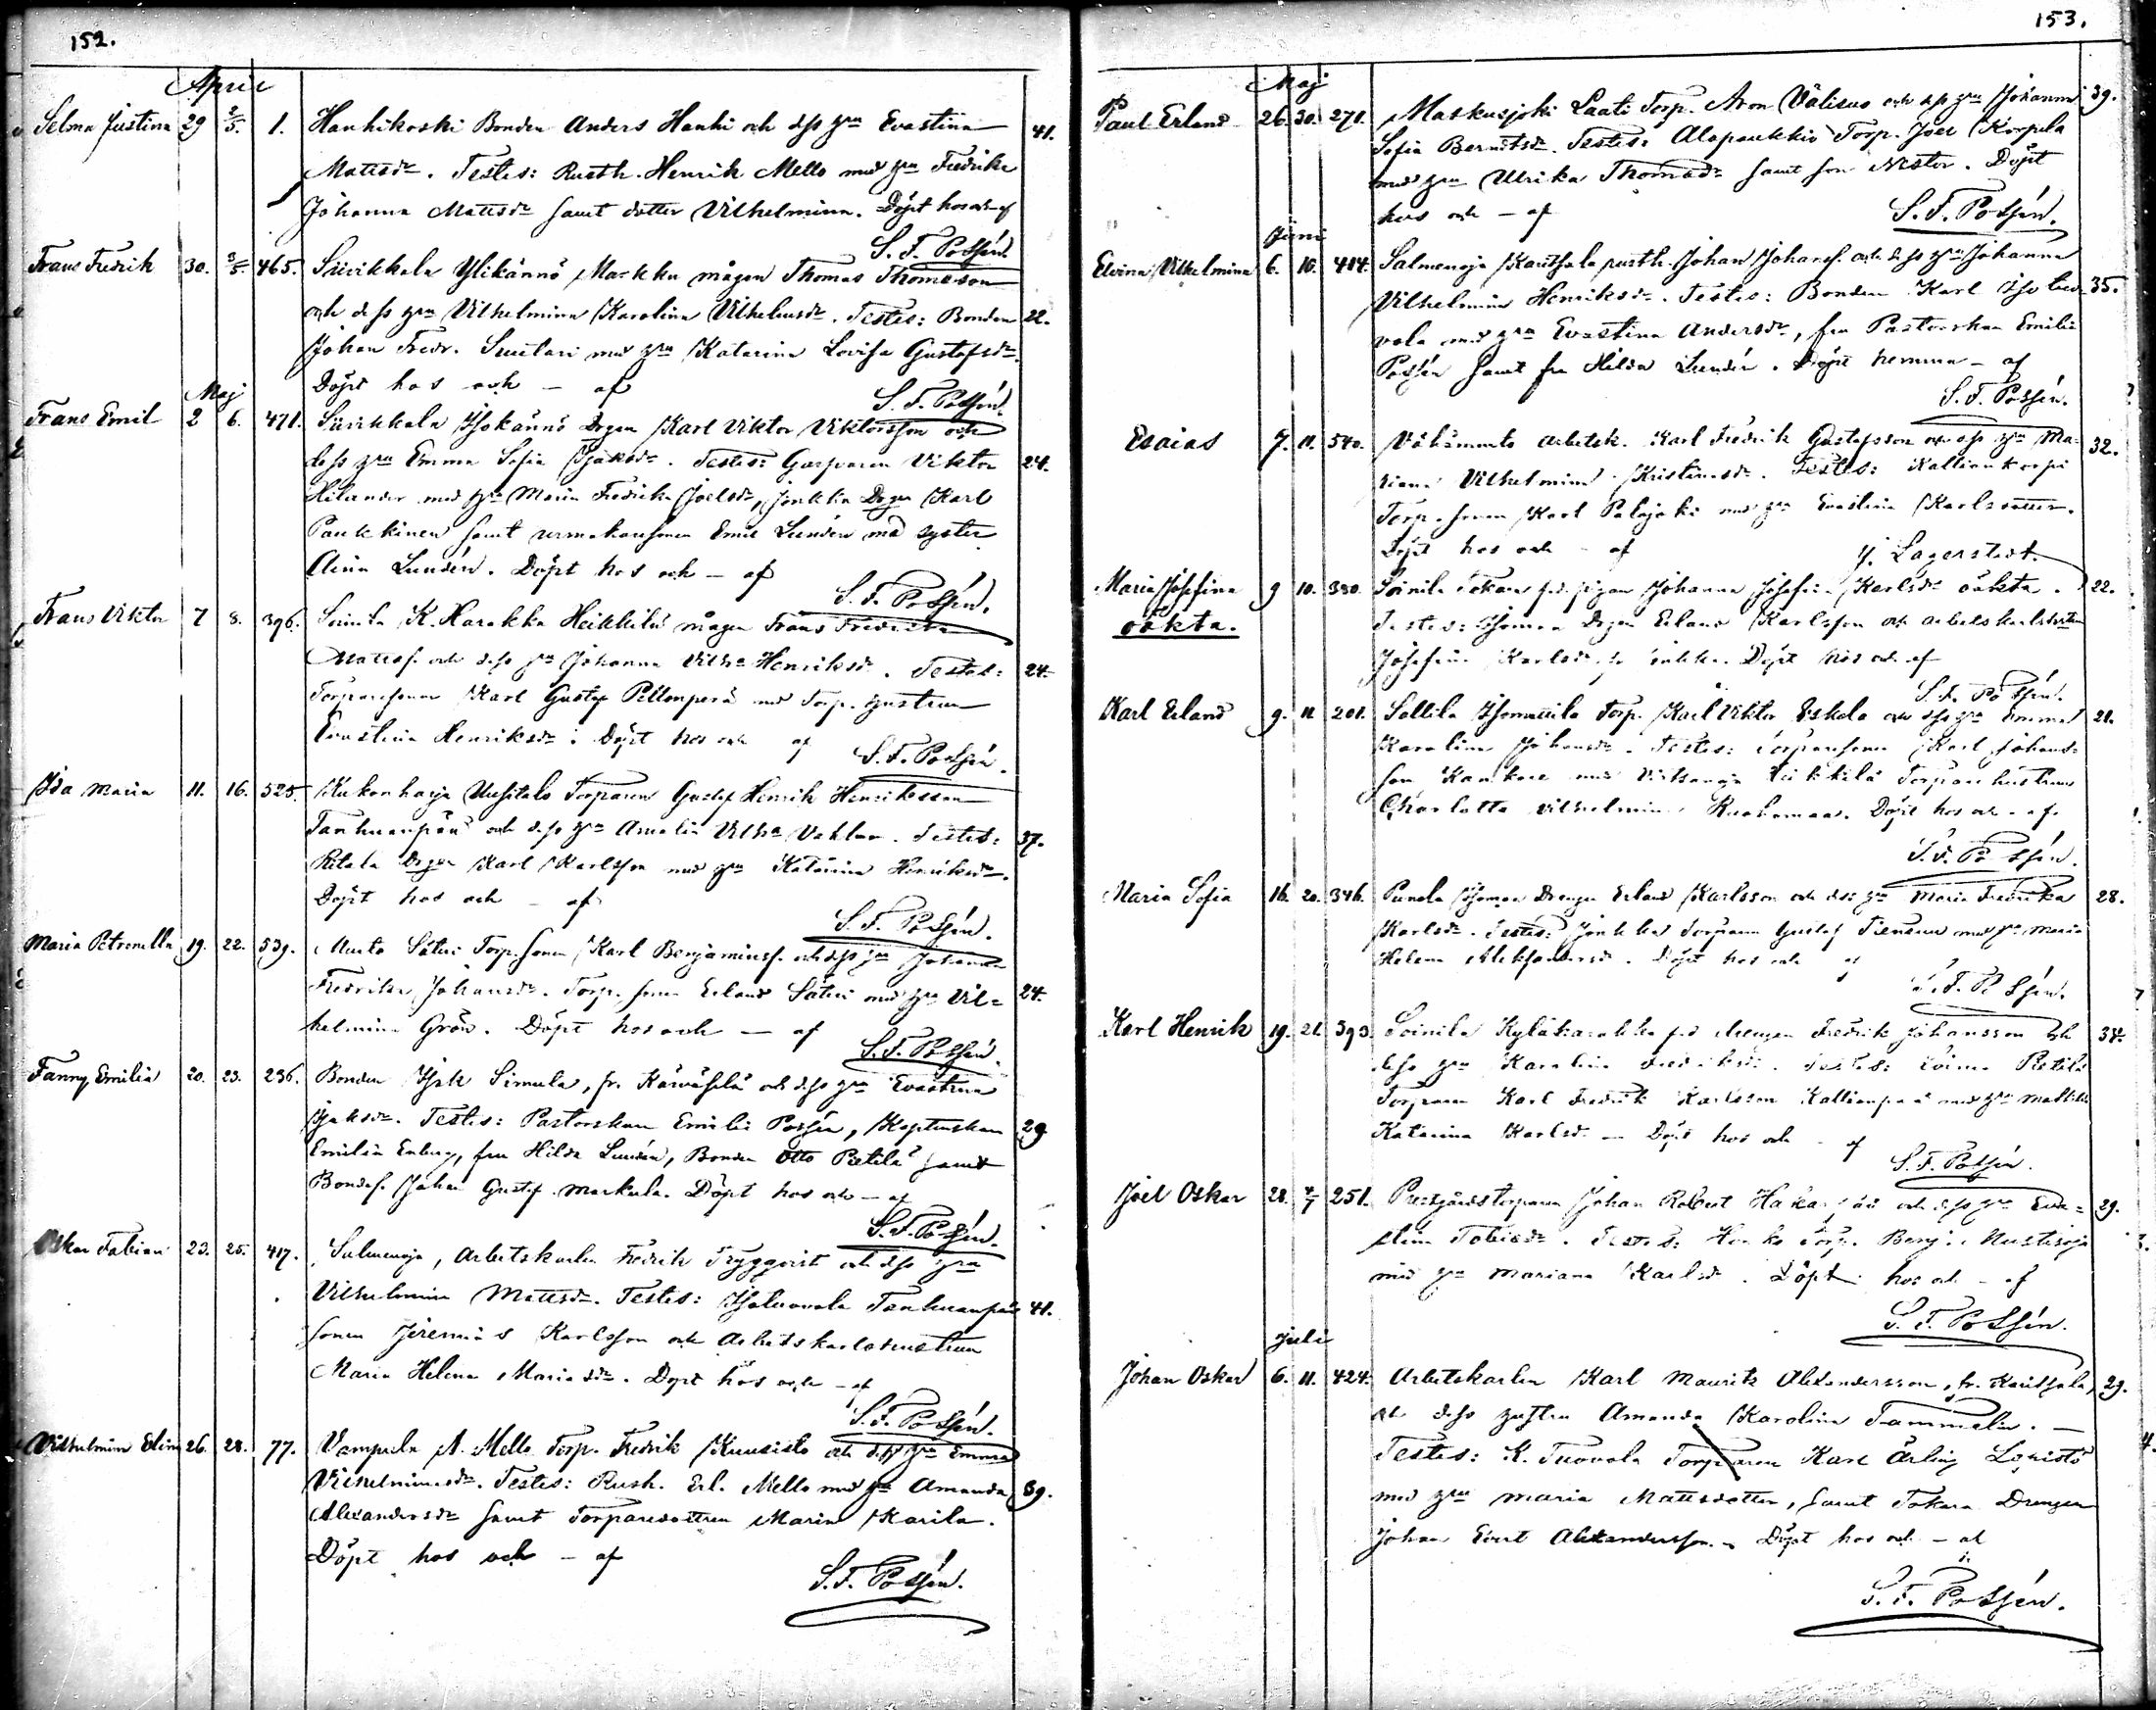 152.
April
Selma Justina 29 2/5. 1. Hanhikoski Bonden Anders Hanhi och dess hru Evastina 41.
Mattsdr. Testes: Rusth. Henrik Mello med hru Fredrika
Johanna Mattsdr samt dotter Vilhelmina. Döpt hos och af
S. F. Possén.
Frans Fredrik 30. 3/5. 465. Suvikkala Ylikännö Markku mågen Thomas Thomasson
och dess hru Vilhelmina Karolina Vilhelmsdr. Testes: Bonden 22.
Johan Fredr. Suutari med hru Katarina Lovisa Gustafsdr.
Döpt hos och - af
S. F. Possén.
Maj
Frans Emil 2 6. 471. Suvikkala Isokännö Drgen Karl Viktor Viktorsson och
dess hru Emma Sofia Isaksdr. Testes: Viktor 24.
Hilander med hru Maria Fredrika Joelsdr, Jonkka Drgen Karl
Paukkinen samt sonen Emil Lundén med syster
Alina Lundén. Döpt hos och - af
S. F. Possén.
Frans Viktor 7 8. 396. Soinila K. Harakka Heikkilä mågen Frans Fredrik
Mattsf. och dess hru Johanna Vilha Henriksdr. Testes: 24.
Torparesonen Karl Gustaf Peltonperä med Torp. hustrun
Evastina Henriksdr. Döpt hos och af
S. F. Possén.
Ida Maria 11. 16. 525. Kukonharja Uusitalo Torparen Gustaf Henrik Henriksson
Tanhuanpää och dess hru Amalia Vilha Vahlan. Testes: 37.
Pietala Drgen Karl Karlsson med hru Katarina Henriksdr.
Döpt hos och - af
S. F. Possén.
Maria Petronella 19. 22. 539. Murto Säteri Torp. sonen Karl Benjaminsf. och dess hru Johanna
Fredrika Johansdr. Torp. sonen Erland Säteri med hru Vil= 24.
helmina Grön. Döpt hos och - af
S. F. Possén.
Fanny Emilia 20. 23. 236. Bonden Isak Simula, fr. och dess hru Evastina
Isaksdr. Testes: Pastorskan Emilie Possén, Kaptenskan 29
Emilia Enberg, fru Hilda Lundén, Bonden Otto Pietilä samt
Bondef. Johan Gustaf Markula. Döpt hos och - af
S. F. Possén.
Oskar Fabian 23. 25. 417. Salmenoja, Arbetskarlen Fredrik Tryggqvist och dess hru
Vilhelmina Mattsdr. Testes: Isotuovola Tanhuanpää 41.
sonen Jeremias Karlsson och Arbetskarlshustrun
Maria Helena Mariasdr. Döpt hos och - af
S. F. Possén.
Vilhelmina Elin 26. 28. 77. Vampula A. Mello Torp. Fredrik Kuusisto och dess hru Emma
Vilhelminasdr. Testes: Rusth. Erl. Mello med hru Amanda 39.
Alexandersdr samt Torparedottren Maria Karila.
Döpt hos och - af
S. F. Possén.
153.
Maj
Paul Erland 26. 30. 271. Matkusjoki Laati Torp. Aron Välisuo och dess hru Johanna 39.
Sofia Berndtsdr. Testes: Alapaukkio Torp. Joel Korpela
med hru Ulrika Thomasdr samt son Nestor. Döpt
hos och - af
S. F. Possén.
Juni
Elvina Vilhelmina 6. 10. 414. Salmenoja Kautsala rusth. Johan Johansf. och dess hru Johanna
Vilhelmina Henriksdr. Testes: Bonden Karl Isotuo= 35.
vola med hru Evastina Andersdr, fru Pastorskan Emilie
Possén samt fru Hilda Lundén. Döpt hemma - af
S. F. Possén.
Esaias 7. 11. 540. arbetsk. Karl Fredrik Gustafsson och dess hru Ma= 32.
riana Vilhelmina Kristiansdr. Testes: Kalliankorpi
Torp. sonen Karl Palojoki med hru Evastina Karlsdotter.
Döpt hos och - af
J. Lagerstedt.
Maria Josefina 9 10. 380. Soinila Tokara pigan Johanna Josefina Karlsdr oäkta. 22.
oäkta. Testes: Isomaa Drgen Erland Karlsson och arbetskarlshustrun
Josefina Karlsdr. Döpt hos och af
S. F. Possén.
Karl Erland 9. 11. 201. Sallila Isomattila Torp. Karl Viktor Eskola och dess hru Emma 21.
Karolina Johansdr. Testes: Torparesonen Karl Johans=
son Kankare med Virtsanoja Heikkilä Torparehustrun
Charlotta Vilhelmina Ruohomaa. Döpt hos och - af
S. F. Possén.
Maria Sofia 16. 20. 346. Punola Isomaa Drengen Erland Karlsson och dess hru Maria Fredrika 28.
Karlsdr. Testes: Jonkka Torparen Gustaf med hru Maria
Helena Aleksandersdr. Döpt hos och af
S. F. Possén.
Karl Henrik 19. 21. 393. Soinila Kyläharakka Drengen Fredrik Johansson och
dess hru Karolina Fredriksdr. Testes: Pietilä
Torparen Karl Fredrik Karlsson Kallionpää med hru Matilda
Katarina Karlsdr. - Döpt hos och - af
S. F. Possén.
Joel Oskar 28. 4/7 251. Prestgårdstorparen Johan Robert och dess hru Eva= 29.
stina Tobiasdr. Testes: Torp. Benj. Mustioja
med hru Mariana Karlsdr. Döpt hos och - af
S. F. Possén.
Juli
Johan Oskar 6. 11. 424. Arbetskarlen Karl Maurits Alexandersson, fr. Kautsala, 29.
och dess hustru Amanda Karolina Tammelin. -
Testes: K. Tuovola Torparen Karl Ärling Lepistö
med hru Maria Mattsdotter, samt Tokara Drengen
Johan Evert Alexandersson. - Döpt hos och - af
S. F. Possén.